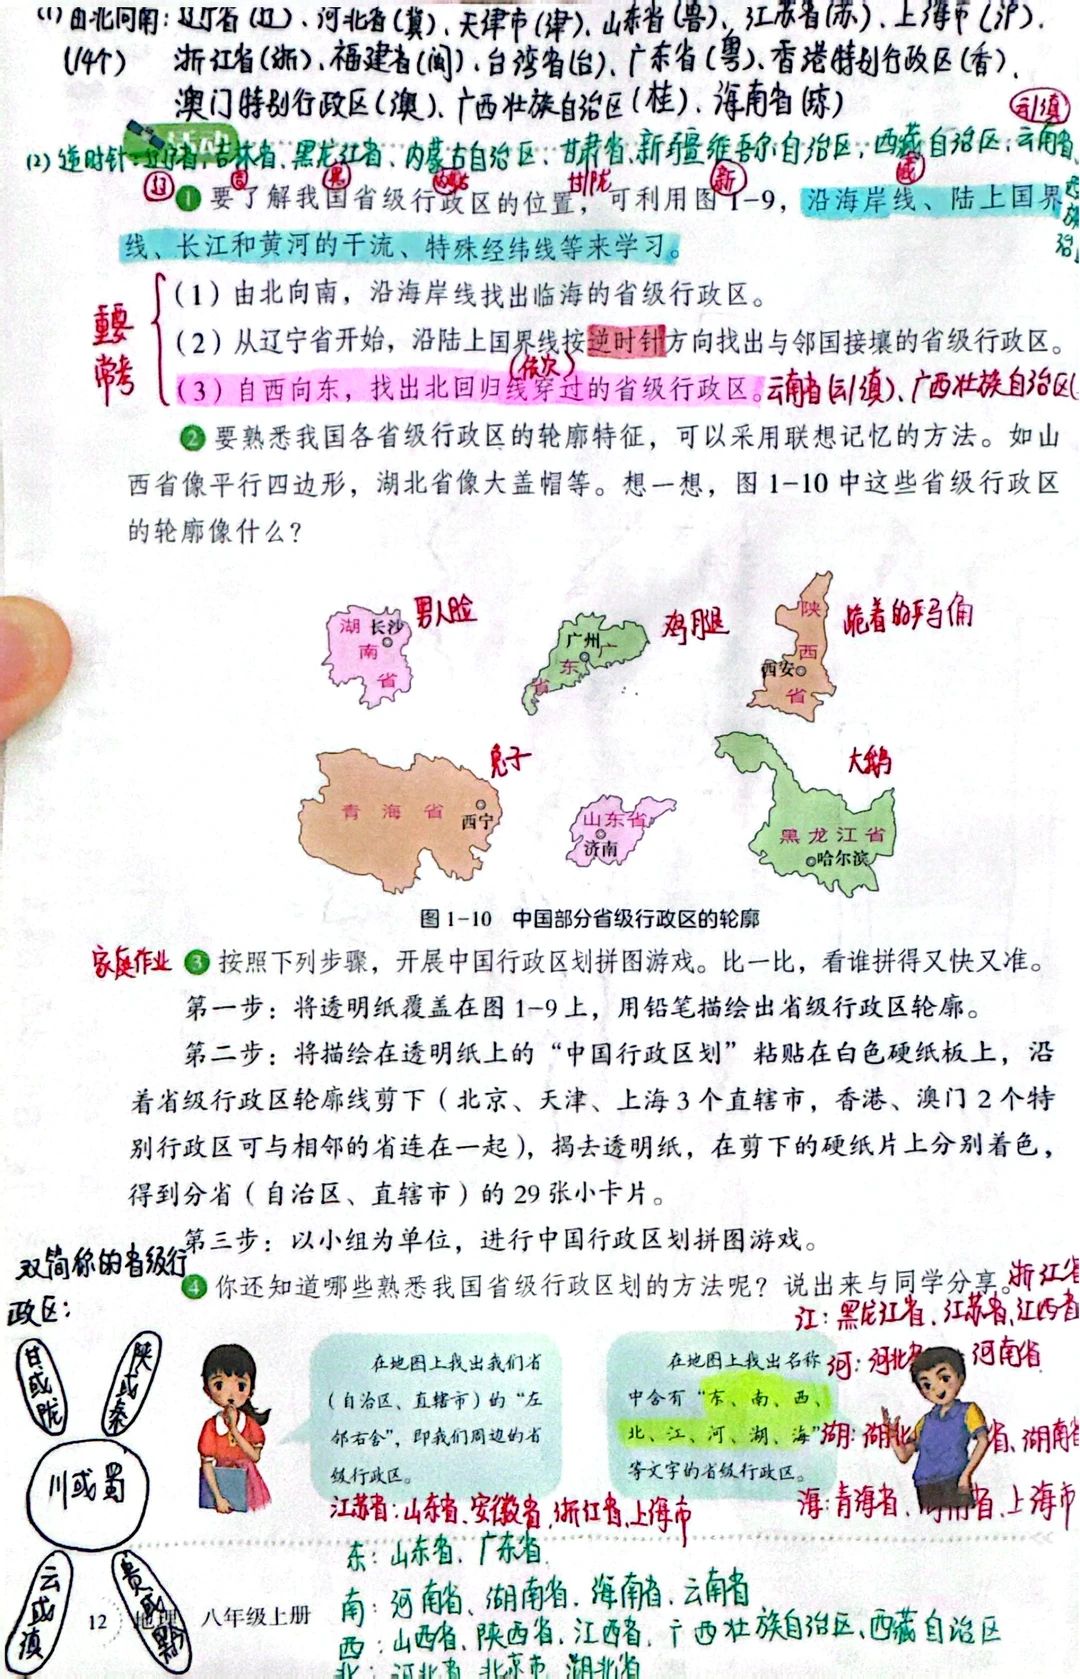 (1)由北向南:辽宁省(辽)、河北省(冀)、天津市(津)、山东省(鲁)、江苏省(苏)、上海市(沪)、
(14个) 浙江省(浙)、福建省(闽)、台湾省(台)、广东省(粤)、香港特别行政区(香)、
澳门特别行政区(澳)、广西壮族自治区(桂)、海南省(琼)
云/滇
活动
(2)逆时针:辽宁省、吉林省、黑龙江省、内蒙古自治区、甘肃省、新疆维吾尔自治区、西藏自治区、云南省、
辽 吉 黑 内蒙古 甘/陇 新 藏
1 要了解我国省级行政区的位置,可利用图1-9,沿海岸线、陆上国界
线、长江和黄河的干流、特殊经纬线等来学习。
重要
常考
(1)由北向南,沿海岸线找出临海的省级行政区。
(2)从辽宁省开始,沿陆上国界线按逆时针方向找出与邻国接壤的省级行政区。
(依次)
(3)自西向东,找出北回归线穿过的省级行政区。云南省(云/滇)、广西壮族自治区(
2 要熟悉我国各省级行政区的轮廓特征,可以采用联想记忆的方法。如山
西省像平行四边形,湖北省像大盖帽等。想一想,图1-10中这些省级行政区
的轮廓像什么?
湖南省 长沙 男人脸
广东省 广州 鸡腿
陕西省 西安 跪着的兵马俑
青海省 西宁 兔子
山东省 济南
黑龙江省 哈尔滨 大鹅
图1-10 中国部分省级行政区的轮廓
家庭作业 3 按照下列步骤,开展中国行政区划拼图游戏。比一比,看谁拼得又快又准。
第一步:将透明纸覆盖在图1-9上,用铅笔描绘出省级行政区轮廓。
第二步:将描绘在透明纸上的“中国行政区划”粘贴在白色硬纸板上,沿
着省级行政区轮廓线剪下(北京、天津、上海3个直辖市,香港、澳门2个特
别行政区可与相邻的省连在一起),揭去透明纸,在剪下的硬纸片上分别着色,
得到分省(自治区、直辖市)的29张小卡片。
第三步:以小组为单位,进行中国行政区划拼图游戏。
双简称的省级行
政区:
4 你还知道哪些熟悉我国省级行政区划的方法呢?说出来与同学分享。浙江省
江:黑龙江省、江苏省、江西省
甘或陇
陕或秦
川或蜀
云或滇
贵或黔
在地图上找出我们省
(自治区、直辖市)的“左
邻右舍”,即我们周边的省
级行政区。
在地图上找出名称
中含有“东、南、西、
北、江、河、湖、海”
等文字的省级行政区。
河:河北省 河南省
湖:湖北省、湖南省
海:青海省、海南省、上海市
江苏省:山东省、安徽省、浙江省、上海市
东:山东省、广东省
南:河南省、湖南省、海南省、云南省
西:山西省、陕西省、江西省、广西壮族自治区、西藏自治区
北:河北省 北京市 湖北省
12 地理 八年级上册